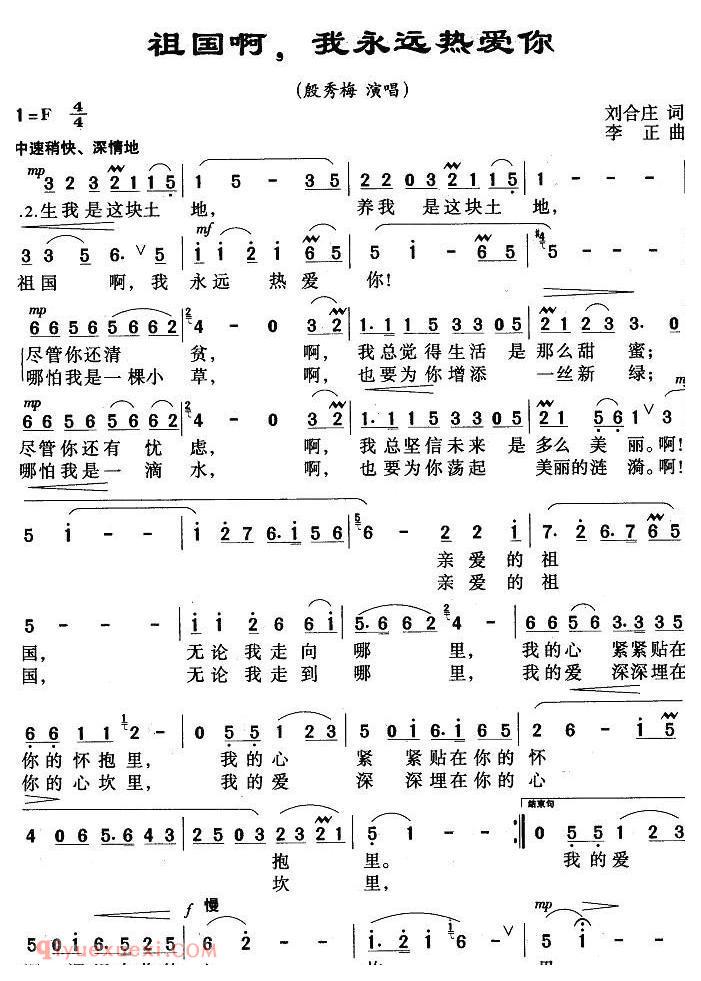 祖国啊，我永远热爱你
(殷秀梅 演唱)
1=F 4/4
刘合庄 词
李 正 曲
中速稍快、深情地
mp
3 2 3 2 1 1 5 | 1 5 - 3 5 | 2 2 0 3 2 1 1 5 | 1 - - -
.2.生我是这块土 地， 养我 是这块土 地，
mf
3 3 5 6. 5 | 1 1 2 1 6 5 | 5 1 - 6 5 | 5 - - -
祖国 啊，我 永远 热爱 你!
mp
6 6 5 6 5 6 6 2 | 4 - 0 3 2 | 1. 1 1 5 3 3 0 5 | 2 1 2 3 3. 0
尽管你还清 贫， 啊， 我总觉得生活 是那么甜 蜜；
哪怕我是一棵小 草， 啊， 也要为你增添 一丝新 绿；
mp
6 6 5 6 5 6 6 2 | 4 - 0 3 2 | 1. 1 1 5 3 3 0 5 | 2 1 5 6 1 3
尽管你还有 忧 虑， 啊， 我总坚信未来 是多么 美 丽。啊!
哪怕我是一 滴 水， 啊， 也要为你荡起 美丽的涟 漪。啊!
5 1 - - | 1 2 7 6. 1 5 6 | 6 - 2 2 1 | 7. 2 6. 7 6 5
亲 爱 的 祖
亲 爱 的 祖
5 - - - | 1 1 2 6 6 1 | 5. 6 6 2 4 - | 6 6 5 6 3. 3 3 5
国， 无论我走向 哪 里， 我的心 紧紧贴在
国， 无论我走到 哪 里， 我的爱 深深埋在
6 6 1 1 2 - | 0 5 5 1 2 3 | 5 0 1 6. 1 6 5 | 2 6 - 5
你的怀抱里， 我的心 紧 紧贴在你的 怀
你的心坎里， 我的爱 深 深埋在你的 心
结束句
4 0 6 5. 6 4 3 | 2 5 0 3 2 3 2 1 | 5 1 - - :‖ 0 5 5 1 2 3
抱 里。 我的爱
坎 里，
f 慢
mp
5 0 1 6. 6 5 2 5 | 6 2 - - | 1. 2 1 6 - | 5 1 - -
qiyuexuexi.com